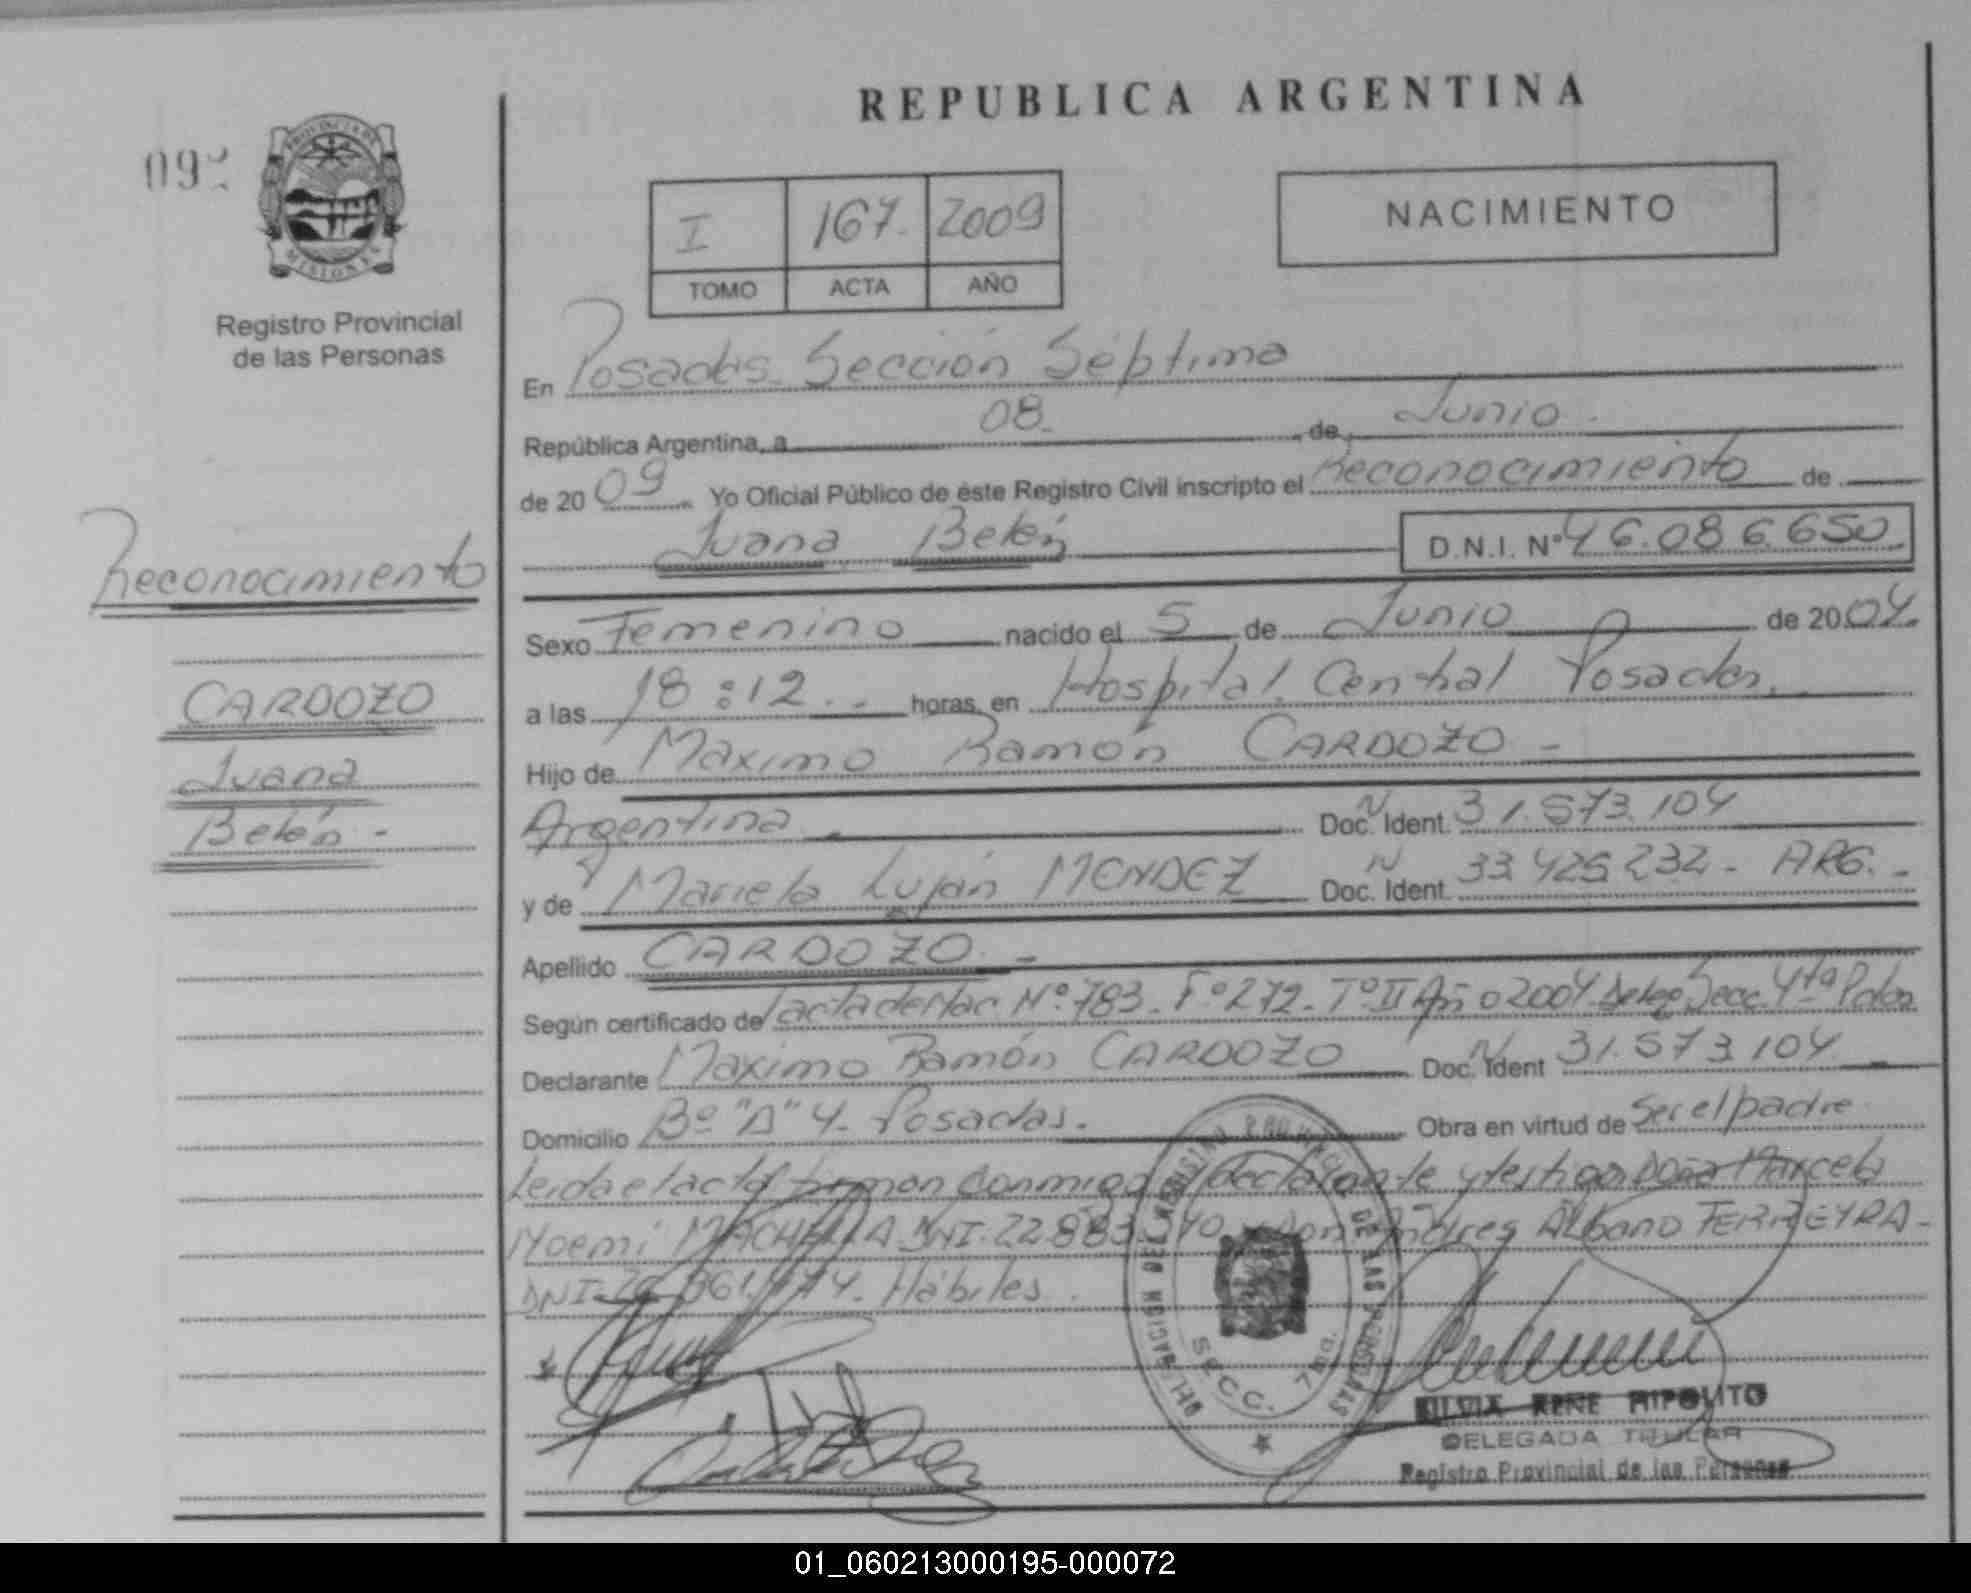 REPUBLICA ARGENTINA
092
PROVINCIA DE
MISIONES
Registro Provincial
de las Personas
I 167. 2009
TOMO ACTA AÑO
NACIMIENTO
En Posadas Sección Séptima
República Argentina, a 08. de Junio.
de 2009 Yo Oficial Público de éste Registro Civil inscripto el Reconocimiento de
Juana Belén D.N.I. Nº 46.086.650
Reconocimiento
CARDOZO
Juana
Belén -
Sexo Femenino nacido el 5 de Junio de 2004.
a las 18:12.- horas, en Hospital Central Posadas.
Hijo de Maximo Ramón CARDOZO -
Argentina - Doc. Ident. N 31.573.104
y de Mariela Luján MENDEZ Doc. Ident. N 33.425.232- ARG.-
Apellido CARDOZO.-
Según certificado de acta de Nac. Nº 783. Fº 272. Tº II Año 2004. Deleg Secc. 4ta Pdas.
Declarante Maximo Ramón CARDOZO Doc. Ident N 31.573.104
Domicilio Bº "A" 4- Posadas. Obra en virtud de Ser el padre
Leida el acta firman conmigo declarante y testigos Doña Marcela
Noemi DNI. 22.883. Don Andres Albano FERREYRA-
DNI- Hábiles.
SECC. 7ma.
SILVIA RENE HIPOLITO
DELEGADA TITULAR
Registro Provincial de las Personas
01_060213000195-000072